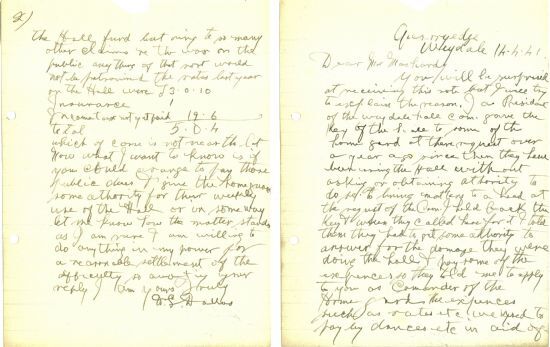 Quarryedge
Weydale 14.4.41
Dear Mr Machard
You will be surprised
at receiving this note but I will try
to explain the reason. I as President
of the Weydale hall com. gave the
key of the hall to some of the
home gard at there request over
a year ago since then they have
been using the Hall without
asking or obtaining athority to
do so. to bring matters to a head at
the request of the com. I held back the
key & when they called here for it I told
them they had to get some athority to
answer for the damage they were
doing the hall & pay some of the
expences so they told me to apply
to you as Comander of the
Home gards the expences
such as rates etc we used to
pay by dances etc in aid of
2)
the Hall fund but owing to so many
other claims re the war on the
public anything of that sort would
not be patronised the rates last year
on the Hall were £3.0.10
Insurance 1
Income tax not yet paid 19.6
total 5.0.4
which of corse is not near the lot
Now what I want to know is if
you could arrange to pay those
Public dues & give the home gard
some athority for their weekly
use of the Hall or in some way
let me know how the matter stands
as I am sure I am willing to
do anything in my power for
a reasonable settlement of the
difficulty so awaiting your
reply I am yours truly